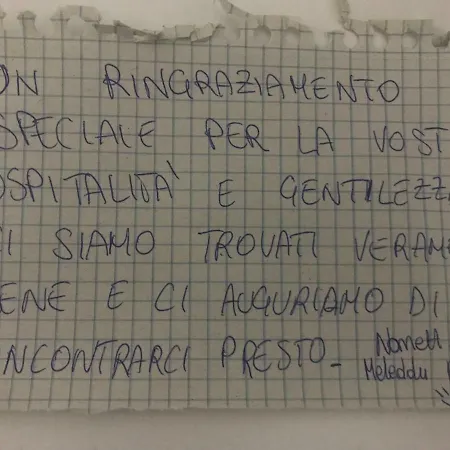 UN RINGRAZIAMENTO
SPECIALE PER LA VOST
OSPITALITÀ E GENTILEZZ
CI SIAMO TROVATI VERAME
ENE E CI AUGURIAMO DI
NCONTRARCI PRESTO_
Meleddu